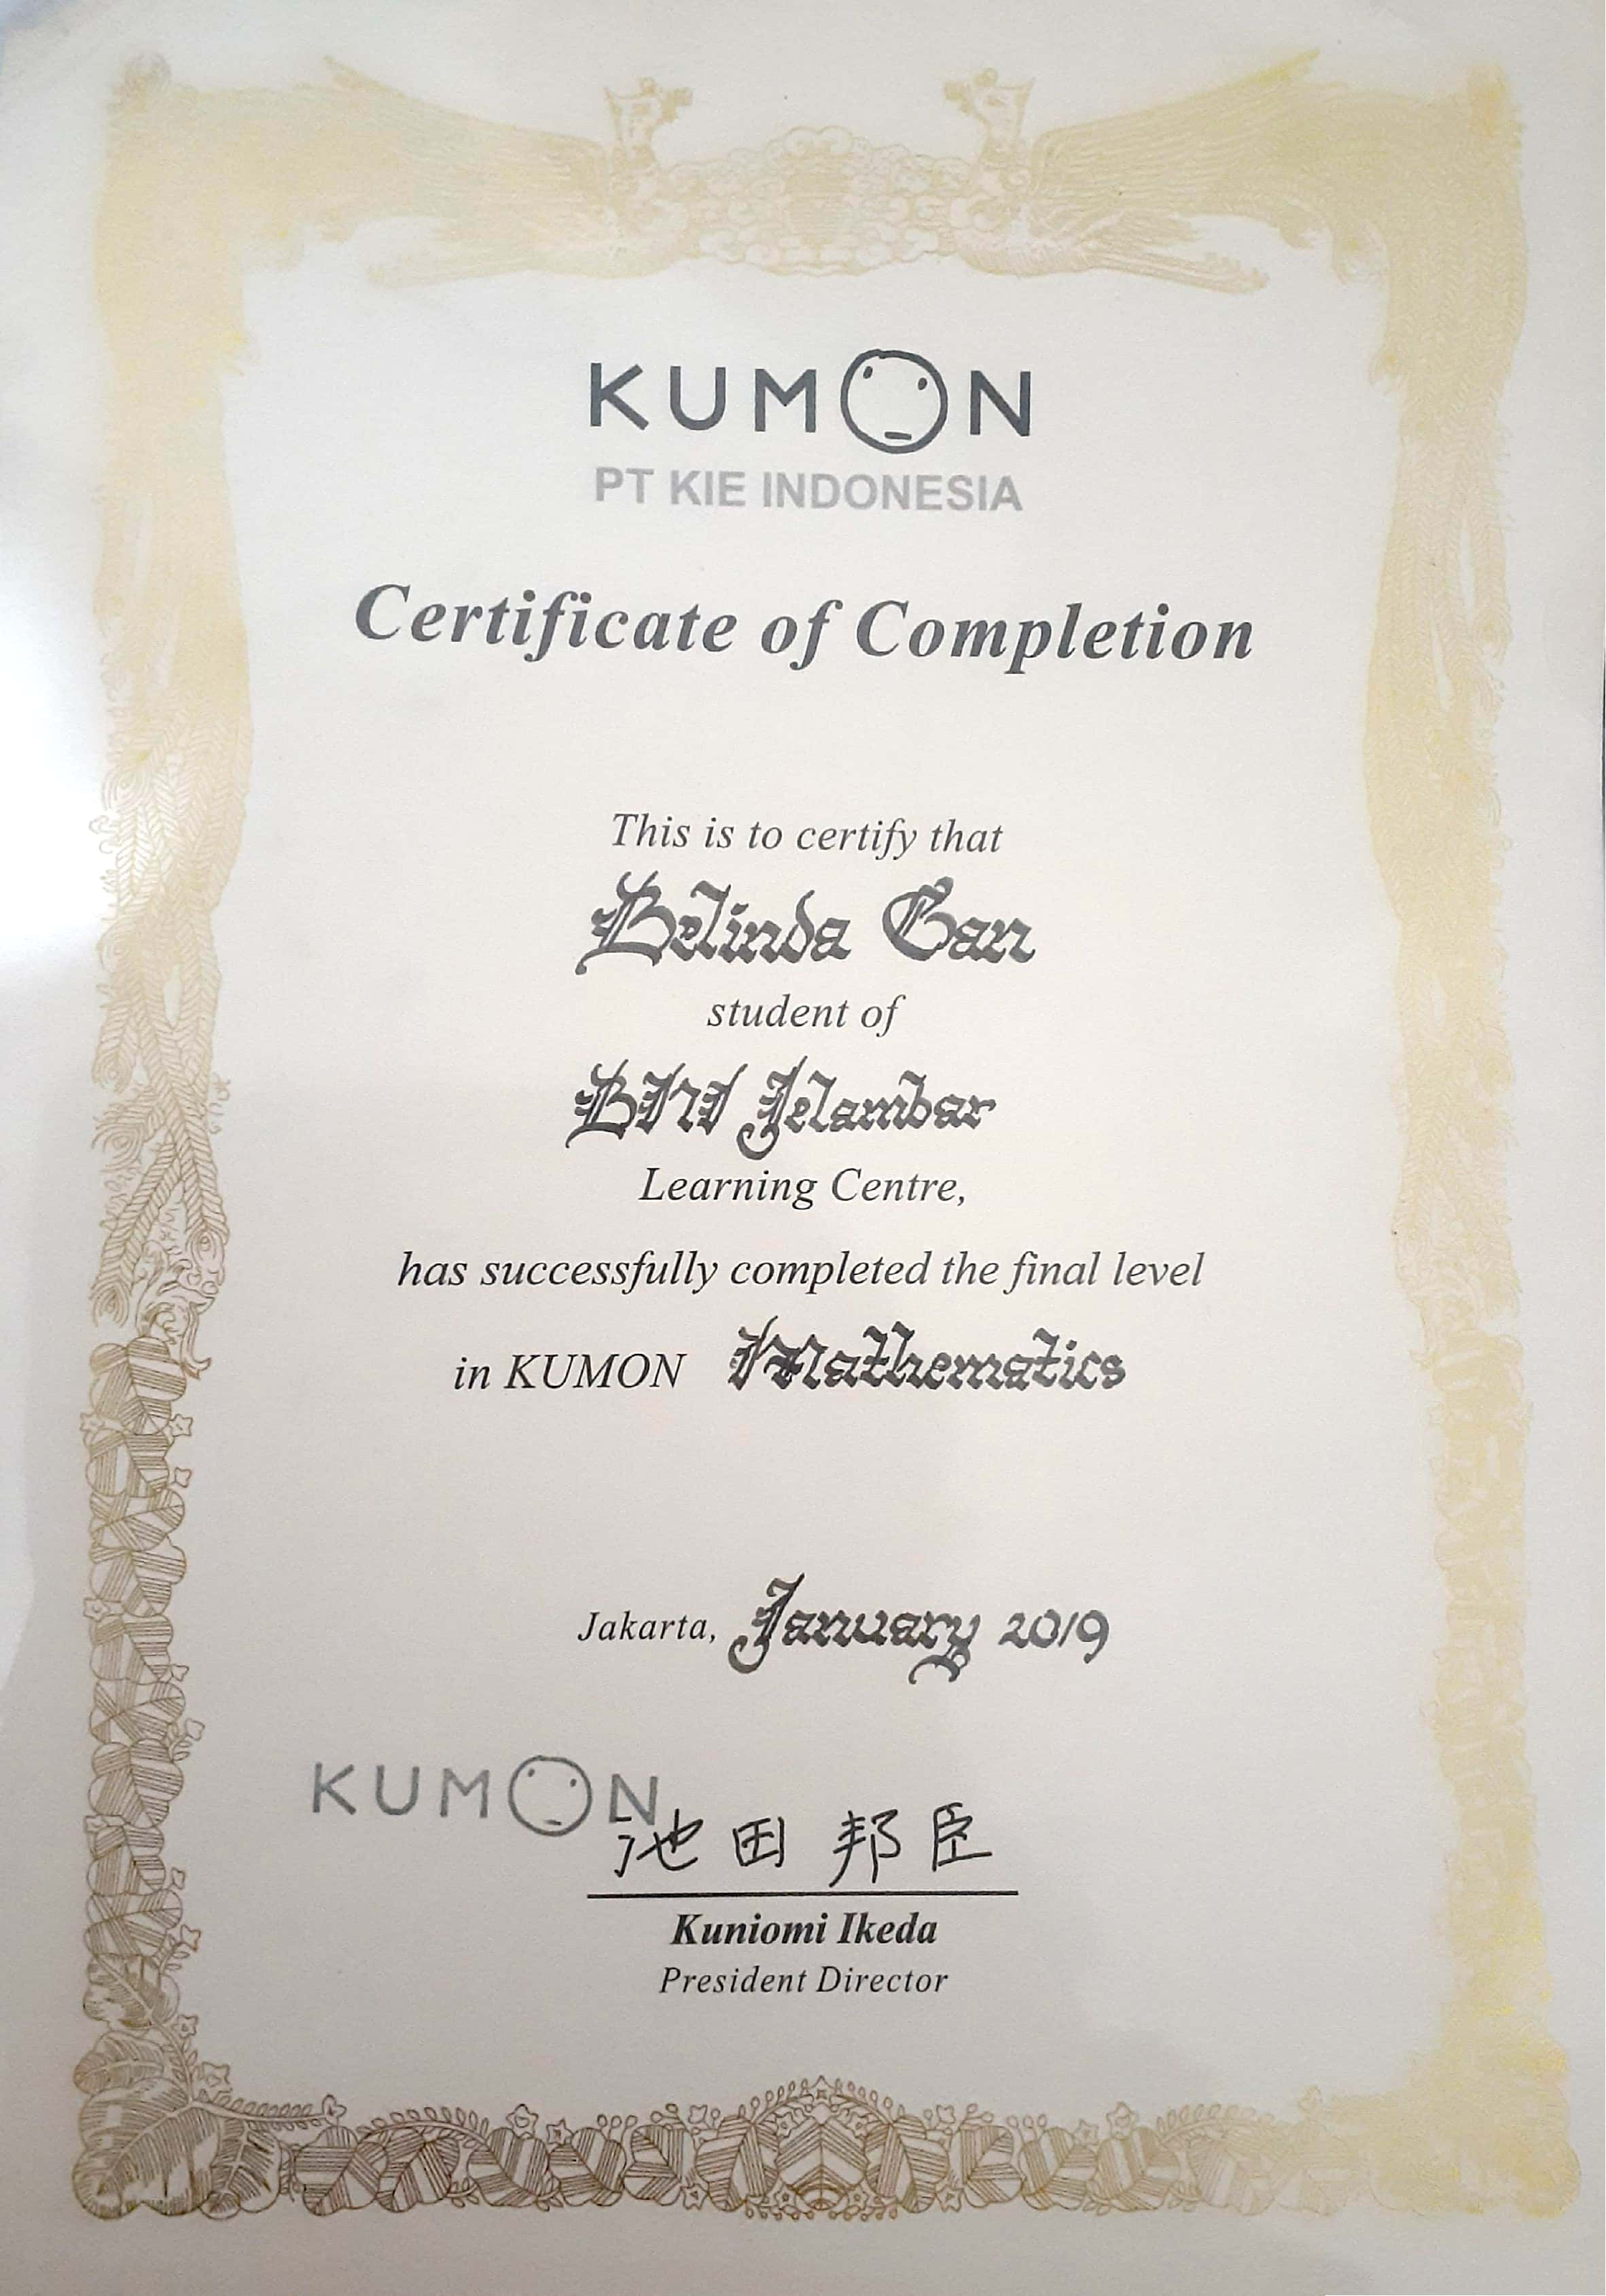 KUMON
PT KIE INDONESIA
Certificate of Completion
This is to certify that
Belinda Gan
student of
BNI Jelambar
Learning Centre,
has successfully completed the final level
in KUMON Mathematics
Jakarta, January 2019
KUMON
池田 邦臣
Kuniomi Ikeda
President Director